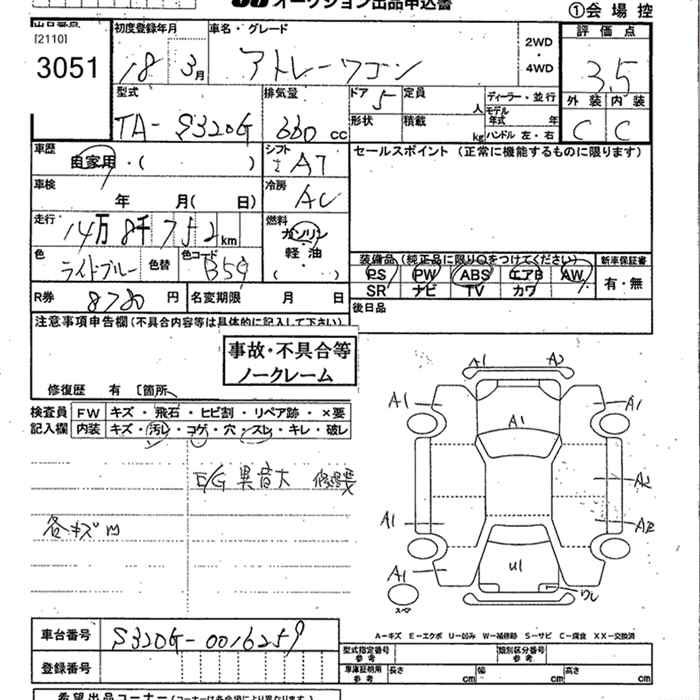 オークション出品申込書
①会場控
[2110]
3051
初度登録年月
18 3月
車名・グレード
アトレーワゴン
2WD
・
4WD
評価点
3.5
外装 内装
C C
型式
TA-S320G
排気量
660 cc
ドア 5
定員 人
ディーラー・並行
モデル年式 年
形状
積載 kg
ハンドル 左・右
車歴
自家用・( )
シフト
AT
セールスポイント (正常に機能するものに限ります)
車検
年 月( 日)
冷房
AC
走行
14万8千752km
燃料
ガソリン
・
軽油
( ・ )
色
ライトブルー
色替
色コード
B59
装備品 (純正品に限り○をつけてください)
新車保証書
PS PW ABS エアB AW
SR ナビ TV カワ
有・無
R券 8780円
名変期限 月 日
後日品
注意事項申告欄(不具合内容等は具体的に記入して下さい)
事故・不具合等
ノークレーム
修復歴 有 〔箇所
検査員 FW キズ・飛石・ヒビ割・リペア跡・×要
記入欄 内装 キズ・汚レ・コゲ・穴・スレ・キレ・破レ
E/G 異音大
各キズm
A1 A2
A1 A1
A1
A2
A1 A2
U1
A1
スペア
A−キズ E−エクボ U−凹み W−補修跡 S−サビ C−腐食 XX−交換済
車台番号 S320G-0016259
登録番号
型式指定番号
参考
類別区分番号
参考
車庫証明用
参考
長さ cm
幅 cm
高さ cm
希望出品コーナー(コーナーは各会場により異なります)